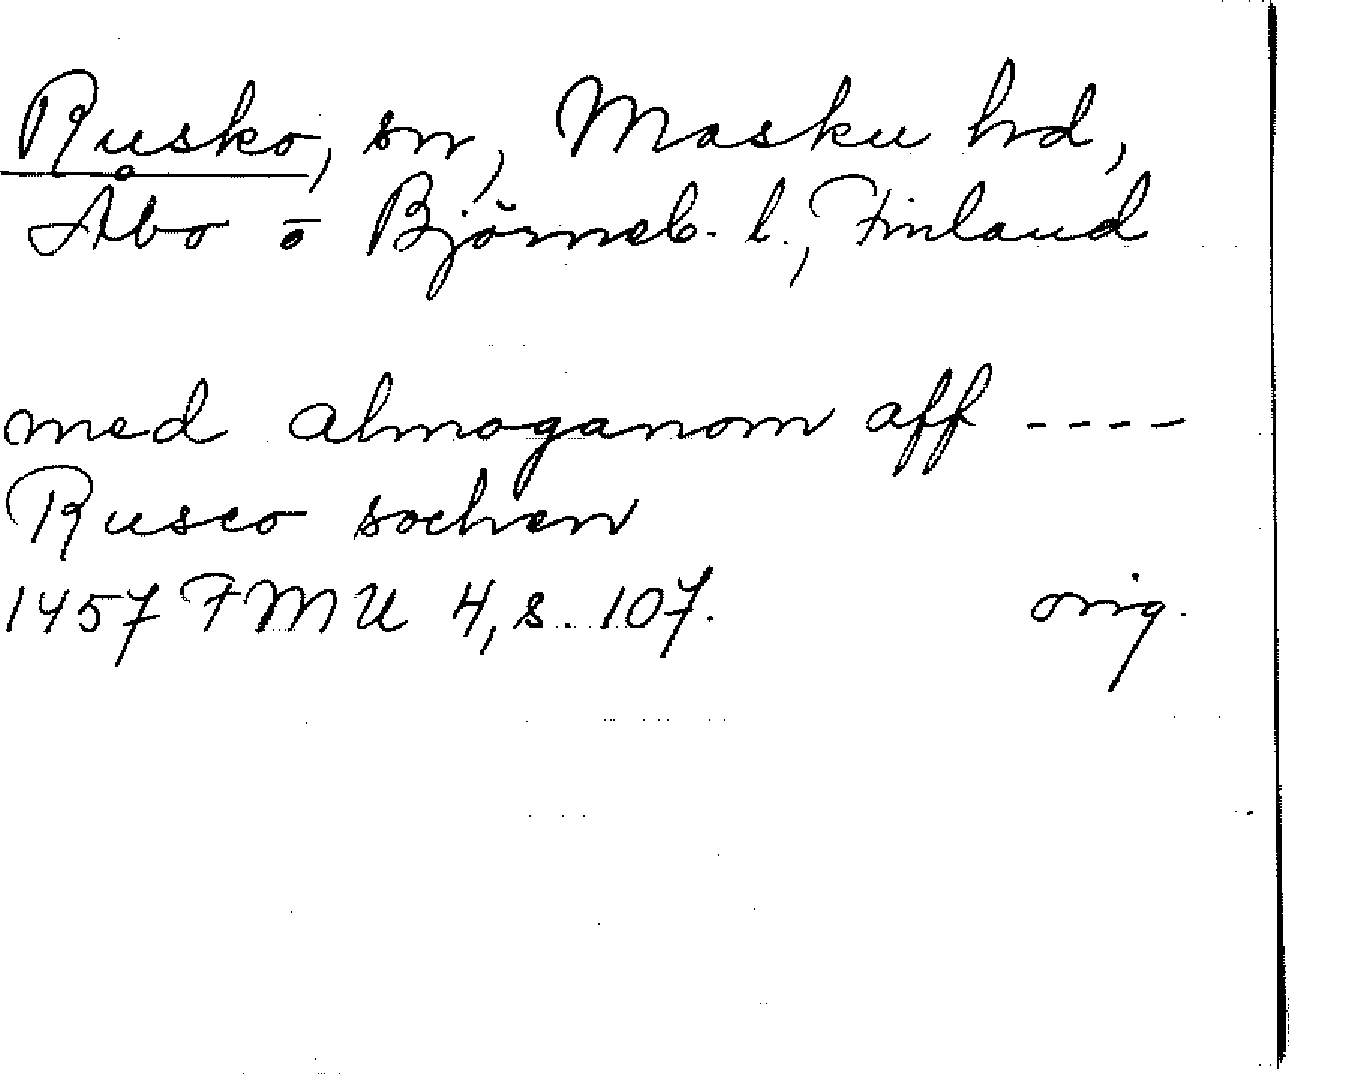 Rusko, sn, Masku hd,
Åbo o Björneb. l., Finland
med almoganom aff ----
Rusco sochen
1457 FMU 4, s. 107. orig.